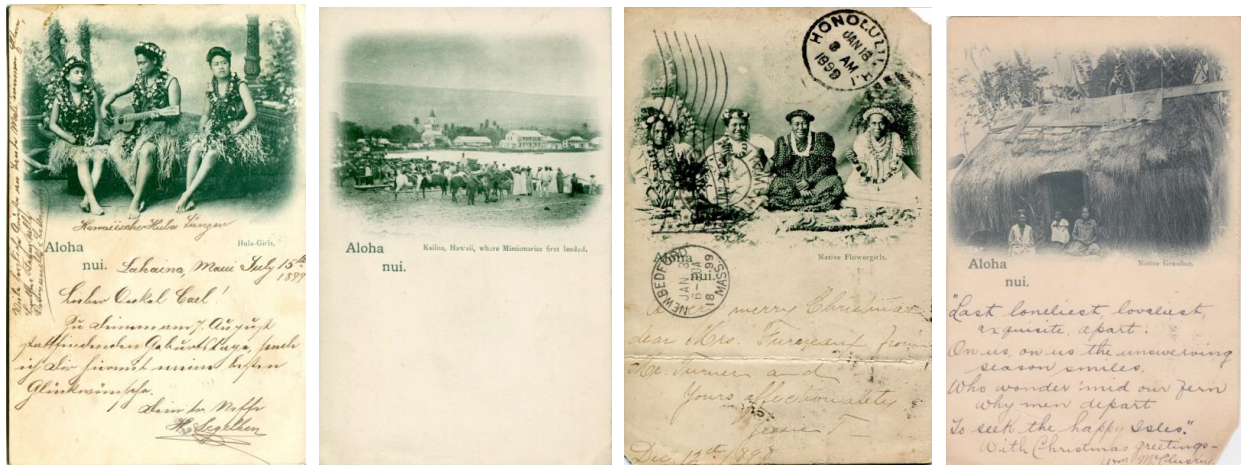 Hawaiische Hula Tänzen
Aloha
nui.
Hula-Girls.
Lahaina, Maui July 15th
1899
Lieber Onkel Carl!
Zu Deinem am 7. August
stattfindenden Geburtstage, sende
ich Dir hiermit meine besten
Glückwünsche.
Dein tr. Neffe
H.
Aloha
nui.
Kailua, Hawaii, where Missionaries first landed.
HONOLULU, H.I.
JAN 18
8 AM
1899
NEW BEDFORD
MASS
JAN
18 99
Aloha
nui.
Native Flowergirls.
merry Christmas
dear Mrs. from
Mr. Turner and
Yours affectionately
Dec. 1898
Aloha
nui.
Native Grasshut.
"Last loneliest, loveliest,
exquisite, apart.
On us, on us the unswerving
season smiles,
Who wonder 'mid our fern
why men depart
To seek the happy Isles."
With Christmas greetings-